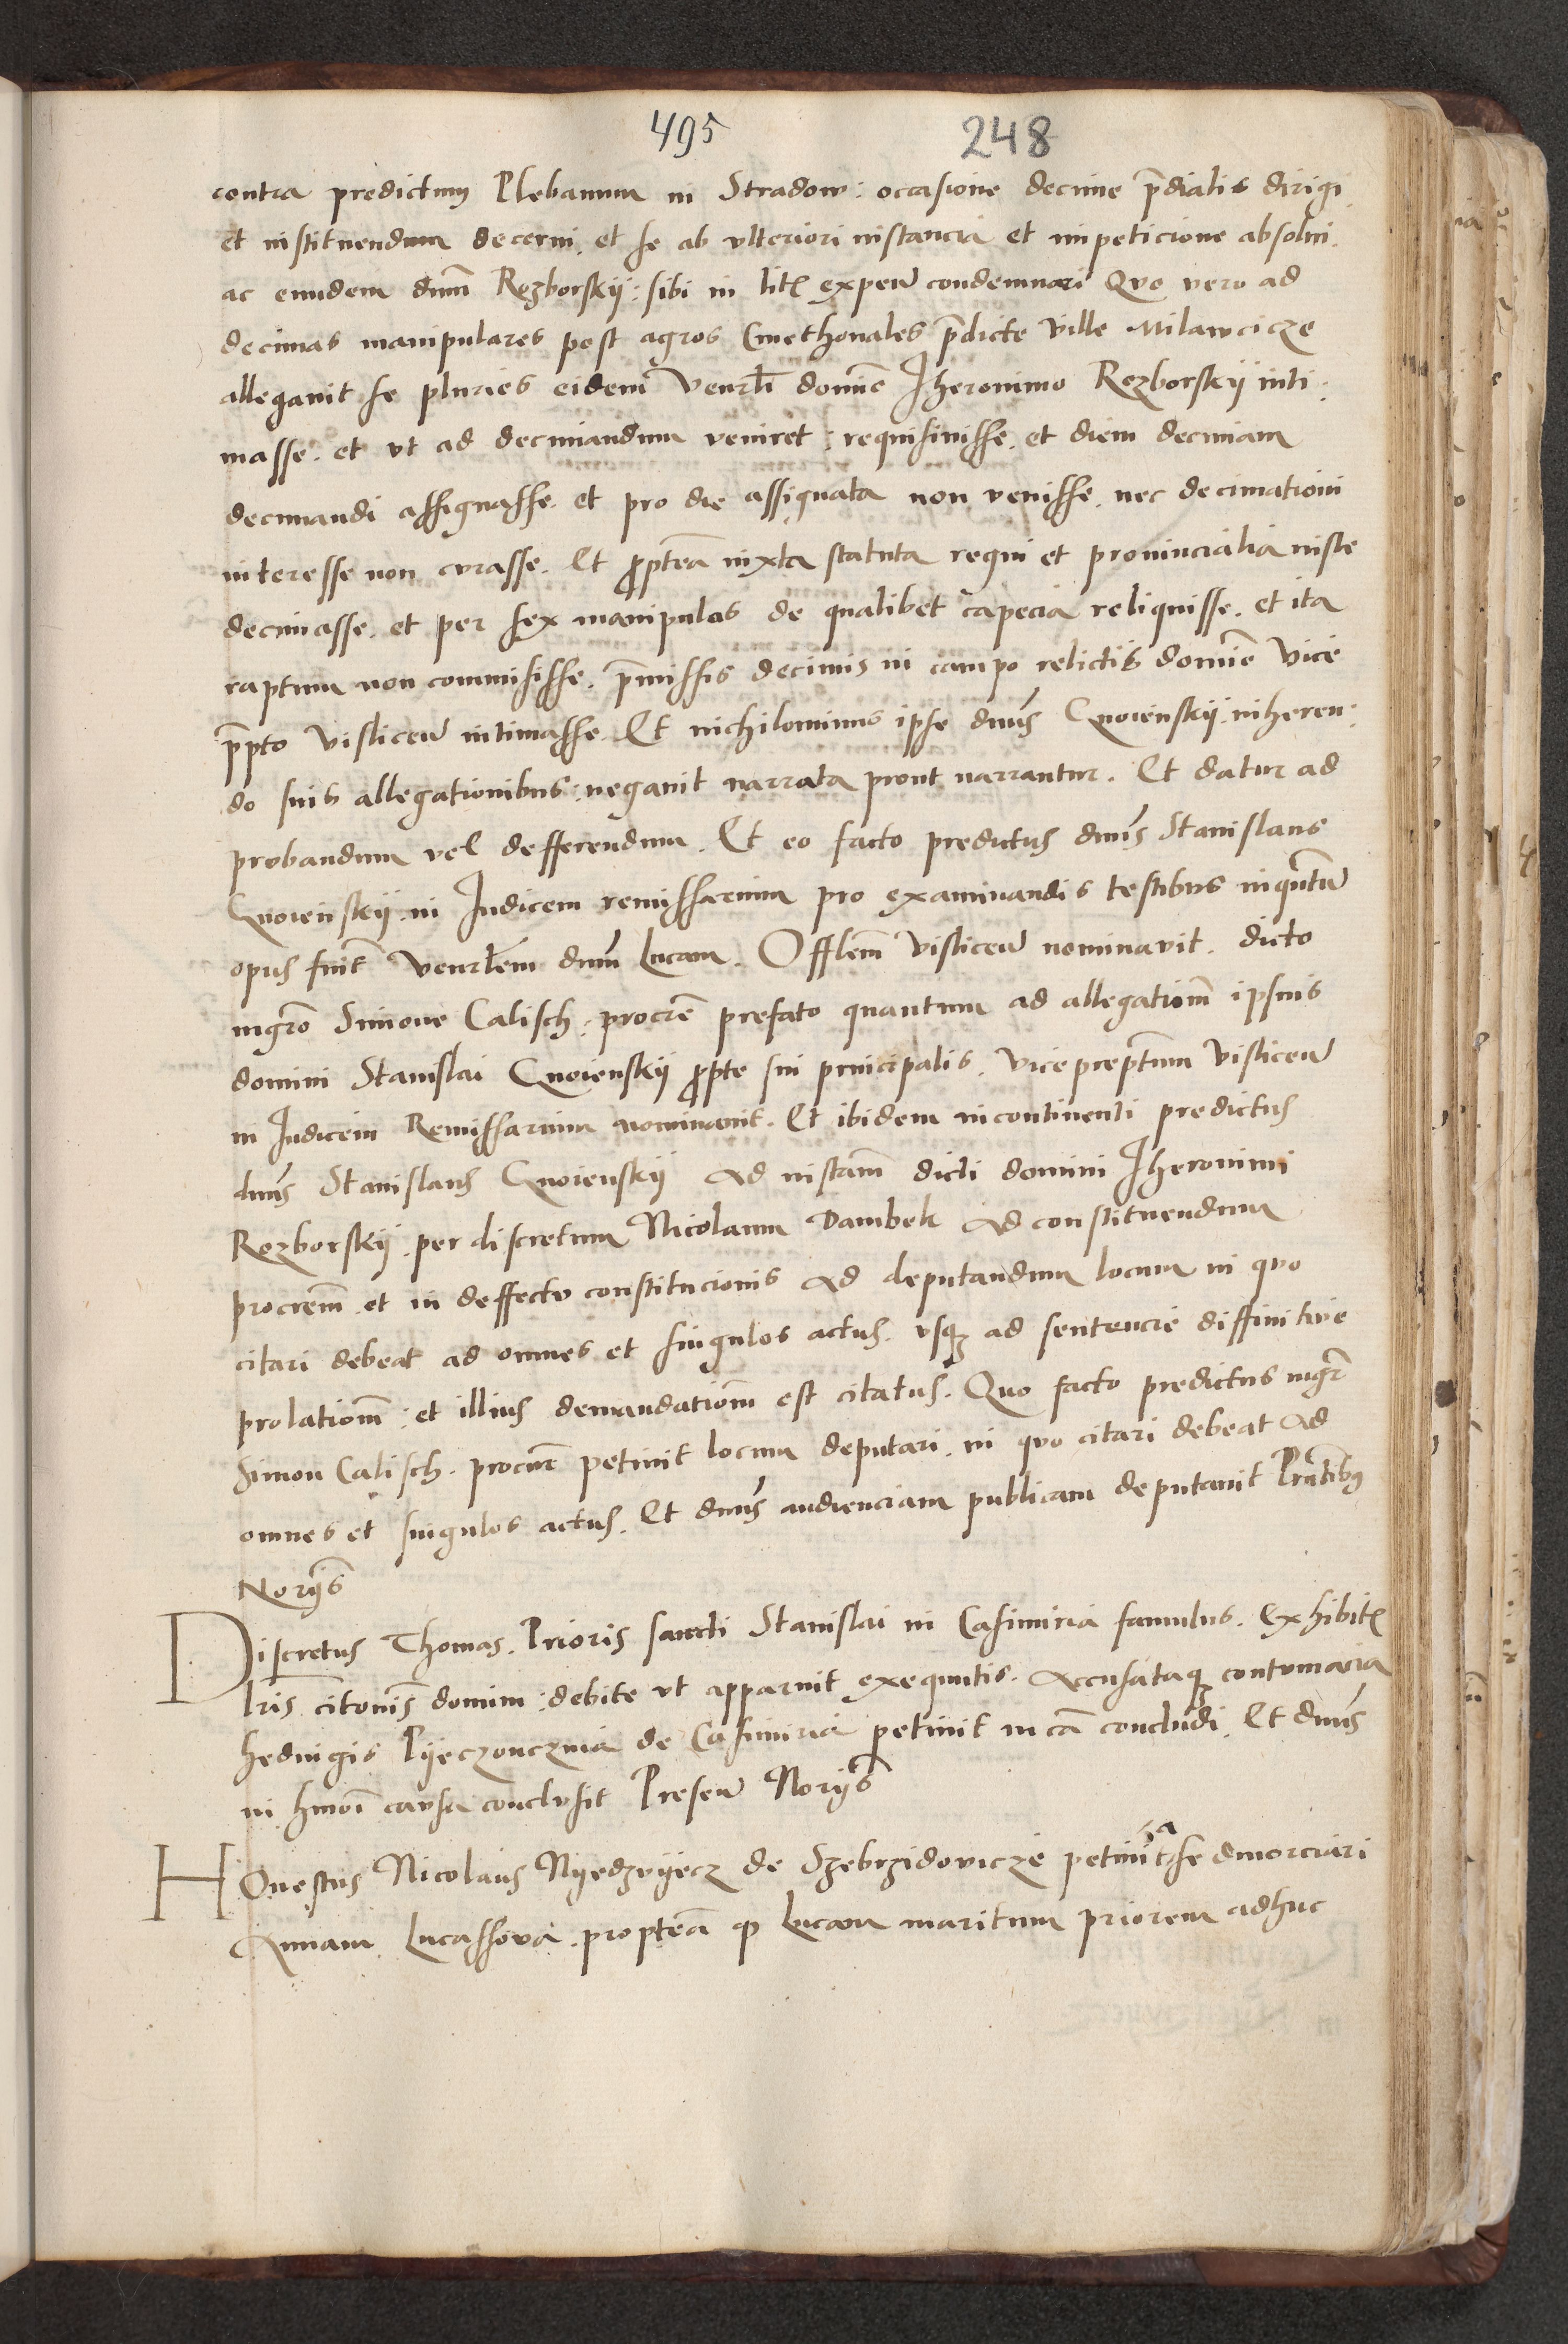 495 248
contra predictum Plebanum in Stradow : occasione decime p̄dialis dirigi
et instituendum decerni . et se ab vlteriori instancia et impeticione absolui .
ac eundem dnm̄ Rozborskÿ : sibi in lit̄ expen̄ condemnari Quo vero ad
decimas manipulares post agros Cmethonales p̄dicte ville Milawcicze
allegauit se pluries eidem Venrl̄i domino Jheronimo Rozborskÿ inti :
masse . et vt ad decimandum veniret : requisiuisse . et diem decimam
decimandi assignasse . et pro die assignata non venisse . nec decimationi
interesse non curasse . Et ꝓpterea iuxta statuta regni et prouincialia iuste
decimasse . et per sex manipulos de qualibet capecia reliquisse . et ita
raptum non commisisse . p̄missis decimis in campo relictis domino Vice
p̄pto Vislicen̄ intimasse . Et nichilominus ipse dnus̄ Gnoienskÿ inheren :
do suis allegationibus : negauit narrata prout narrantur . Et datur ad
probandum vel defferendum . Et eo facto predictus dnus̄ Stanislaus
Gnoienskÿ in Judicem remissarium pro examinandis testibus inqn̄tum
opus fuit Venrl̄em dnm̄ Lucam . Offlem̄ Vislicen̄ nominavit . dicto
mgr̄o Simone Calisch : procrē prefato quantum ad allegationem̄ ipsius
domini Stanislai Gnoienskÿ ꝓpte sui principalis . vicepreptum Vislicen̄
in Judicem Remissarium nominauit . Et ibidem incontinenti predictus
dnus̄ Stanislaus Gnoienskÿ Ad instam̄ dicti domini Jheronimi
Rozborskÿ . per discretum Nicolaum Dambek Ad constituendum
procrem̄ . et in deffectu constitucionis Ad deputandum locum in quo
citari debeat ad omnes et singulos actus . vsqꝫ ad sentencie diffinitiue
prolationem̄ : et illius demandationem̄ est citatus . Quo facto predictus mgr̄
Simon Calisch . procur̄ petiuit locum deputari . in quo citari debeat Ad
omnes et singulos actus . Et dnus̄ audienciam publicam deputauit Pn̄tibus
Norÿs
Discretus Thomas . Prioris sancti Stanislai in Casimiria famulus . Exhibit̄
lr̄is citonis̄ domini : debite vt apparuit exequutis . Accusataqꝫ contumacia
hedwigis Pÿeczonczina de Casimiria petiuit in cā concludi . Et dnus̄
in hmoī causa conclusit Presen̄ Norÿs
HOnestus Nicolaus Nÿedzvÿecz de Szebrzidovicze petiuit a se diuorciari
Annam Lucassova . propterea qꝫ Lucam maritum priorem adhuc